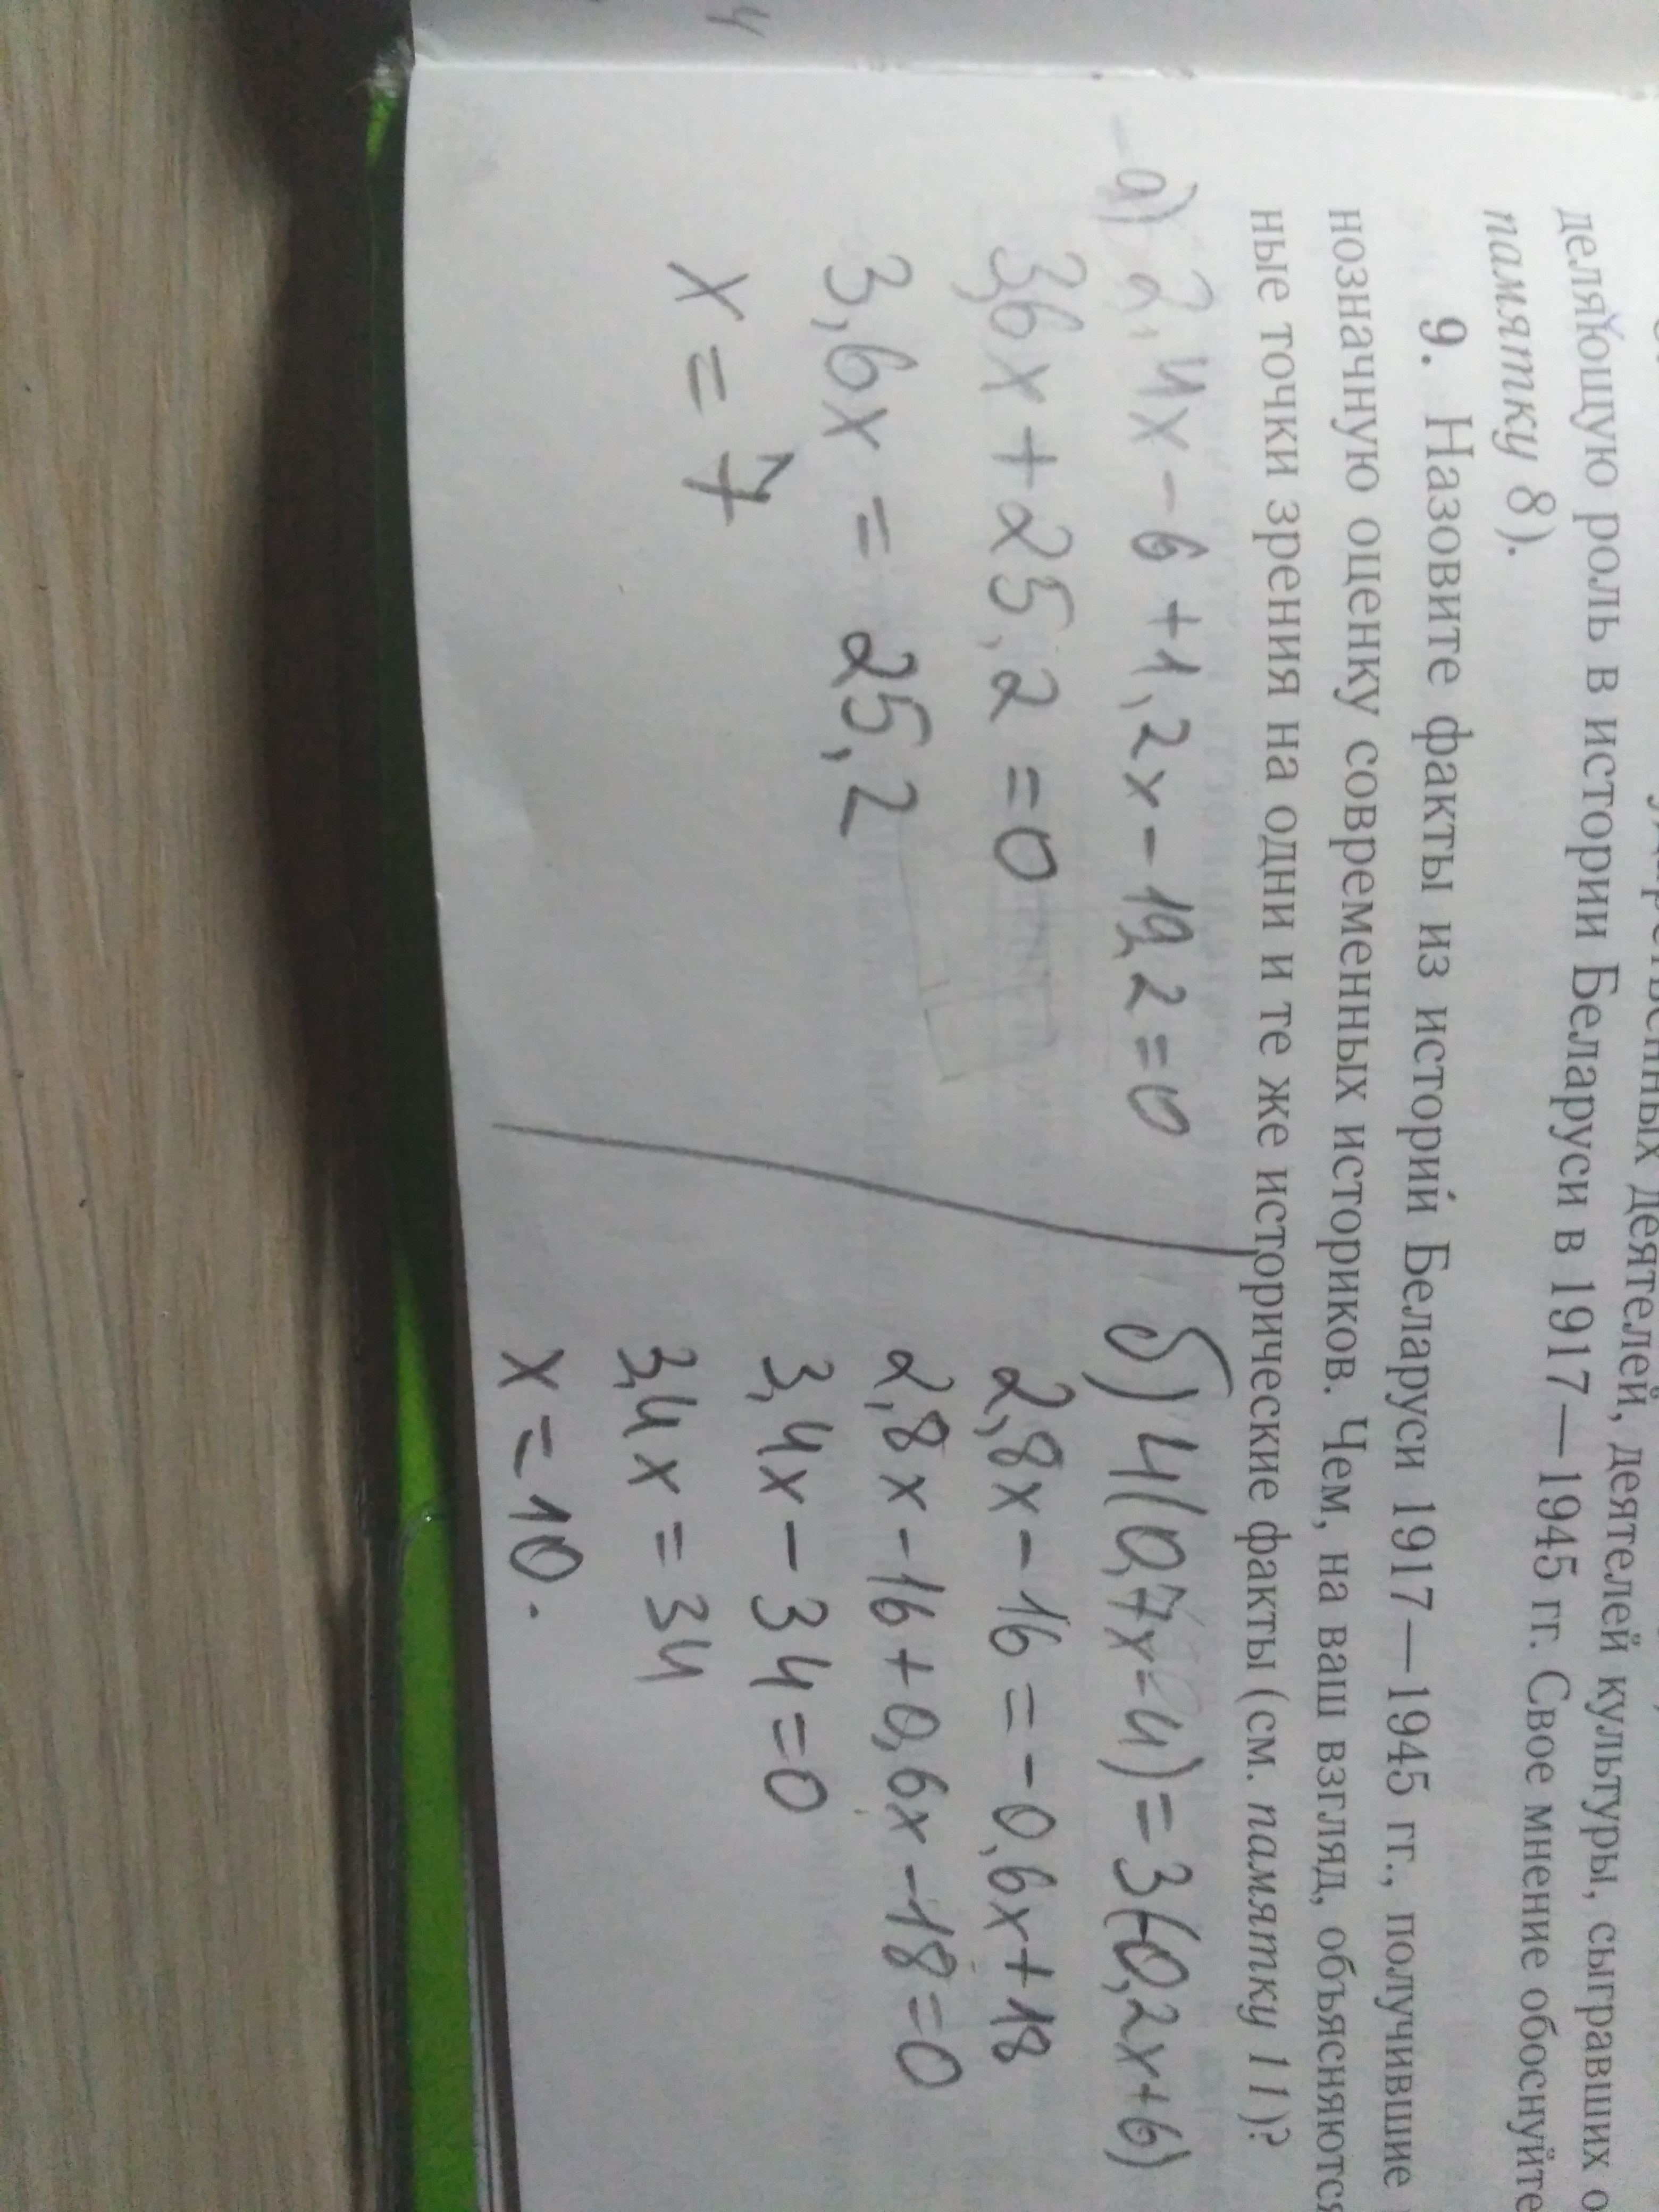 деляющую роль в истории Беларуси в 1917—1945 гг. Свое мнение обоснуйте
памятку 8).
9. Назовите факты из историй Беларуси 1917—1945 гг., получившие
нозначную оценку современных историков. Чем, на ваш взгляд, объясняются
ные точки зрения на одни и те же исторические факты (см. памятку 11)?
а) 2,4x - 6 + 1,2x - 19,2 = 0
3,6x + 25,2 = 0
3,6x = 25,2
x = 7
б) 4(0,7x - 4) = 3(-0,2x + 6)
2,8x - 16 = -0,6x + 18
2,8x - 16 + 0,6x - 18 = 0
3,4x - 34 = 0
3,4x = 34
x = 10.